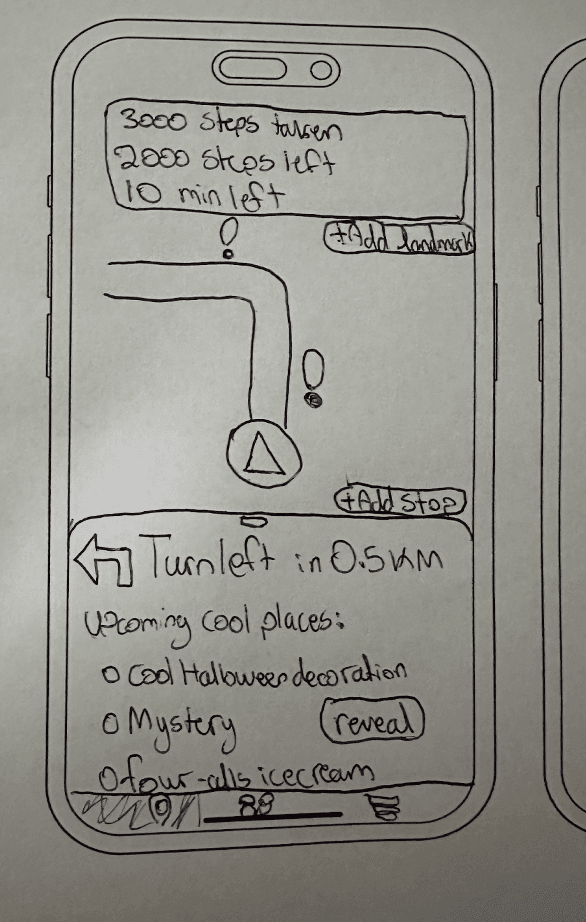 3000 steps taken
2000 steps left
10 min left
+Add landmark
+Add stop
Turn left in 0.5 KM
Upcoming cool places:
Cool Halloween decoration
Mystery
reveal
icecream